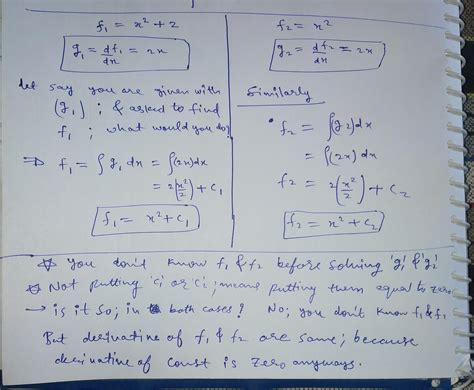 f₁ = x² + 2
g₁ = df₁/dx = 2x
Let say you are given with
(g₁) ; & asked to find
f₁ ; what would you do?
⇒ f₁ = ∫ g₁ dx = ∫(2x)dx
= 2(x²/2) + C₁
f₁ = x² + C₁
f₂ = x²
g₂ = df₂/dx = 2x
Similarly
f₂ = ∫(g₂)dx
= ∫(2x) dx
f₂ = 2(x²/2) + C₂
f₂ = x² + C₂
☆ You don't know f₁ & f₂ before solving 'g₁' & 'g₂'
☆ Not putting 'C₁' or C₂'; means putting them equal to zero,
→ is it so; in both cases? No; you don't know f₁ & f₂
But derivative of f₁ & f₂ are same; because
derivative of const is zero anyways.